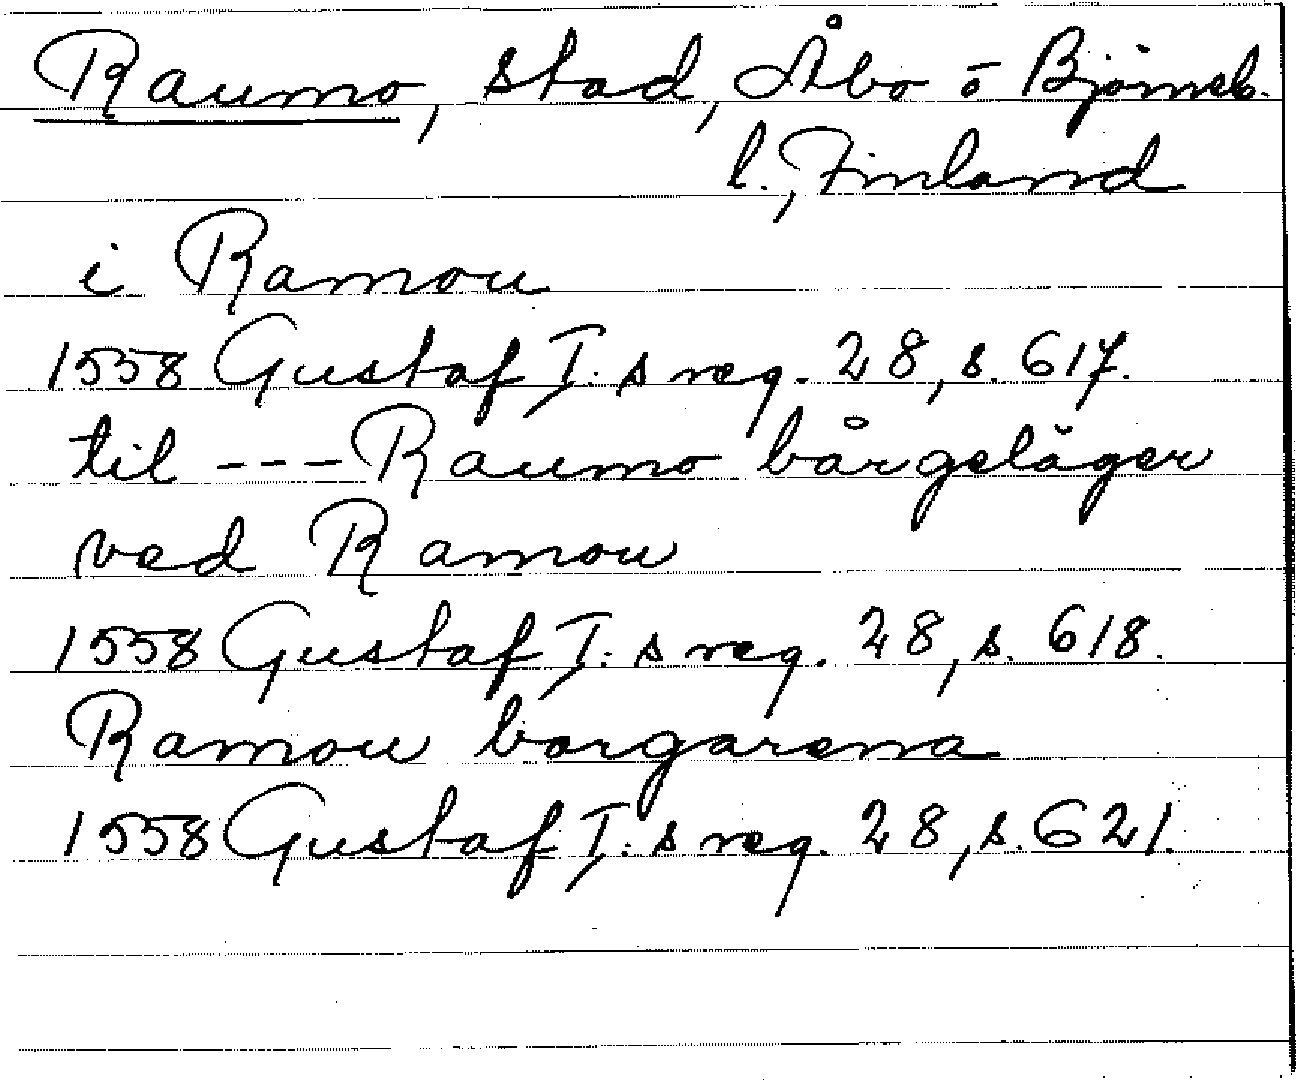 Raumo, stad, Åbo o Björneb.
l., Finland
i Ramou
1558 Gustaf I:s reg. 28, s. 617.
til --- Raumo bårgeläger
ved Ramou
1558 Gustaf I:s reg. 28, s. 618.
Ramou borgarena
1558 Gustaf I:s reg. 28, s. 621.